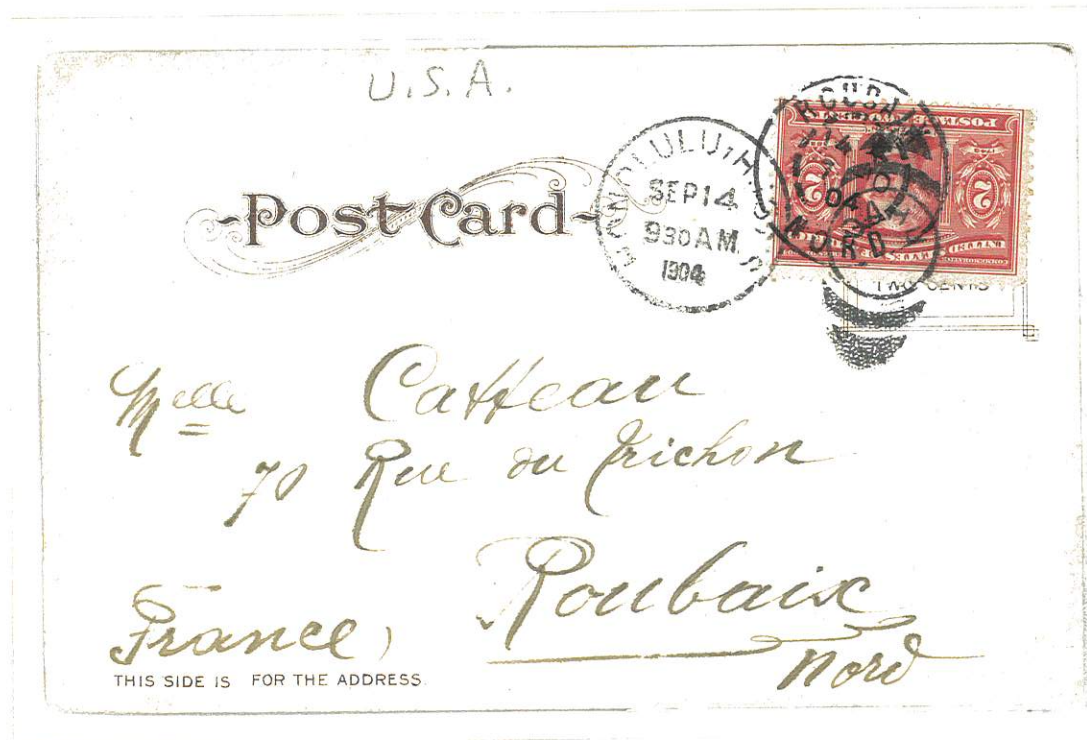 U.S.A.
Post Card
HONOLULU, H.
SEP 14
930 AM
1904
ROUBAIX
04
NORD
POSTAGE
2
2
TWO CENTS
Melle Catteau
70 Rue du Trichon
Roubaix
Nord
France,
THIS SIDE IS FOR THE ADDRESS.